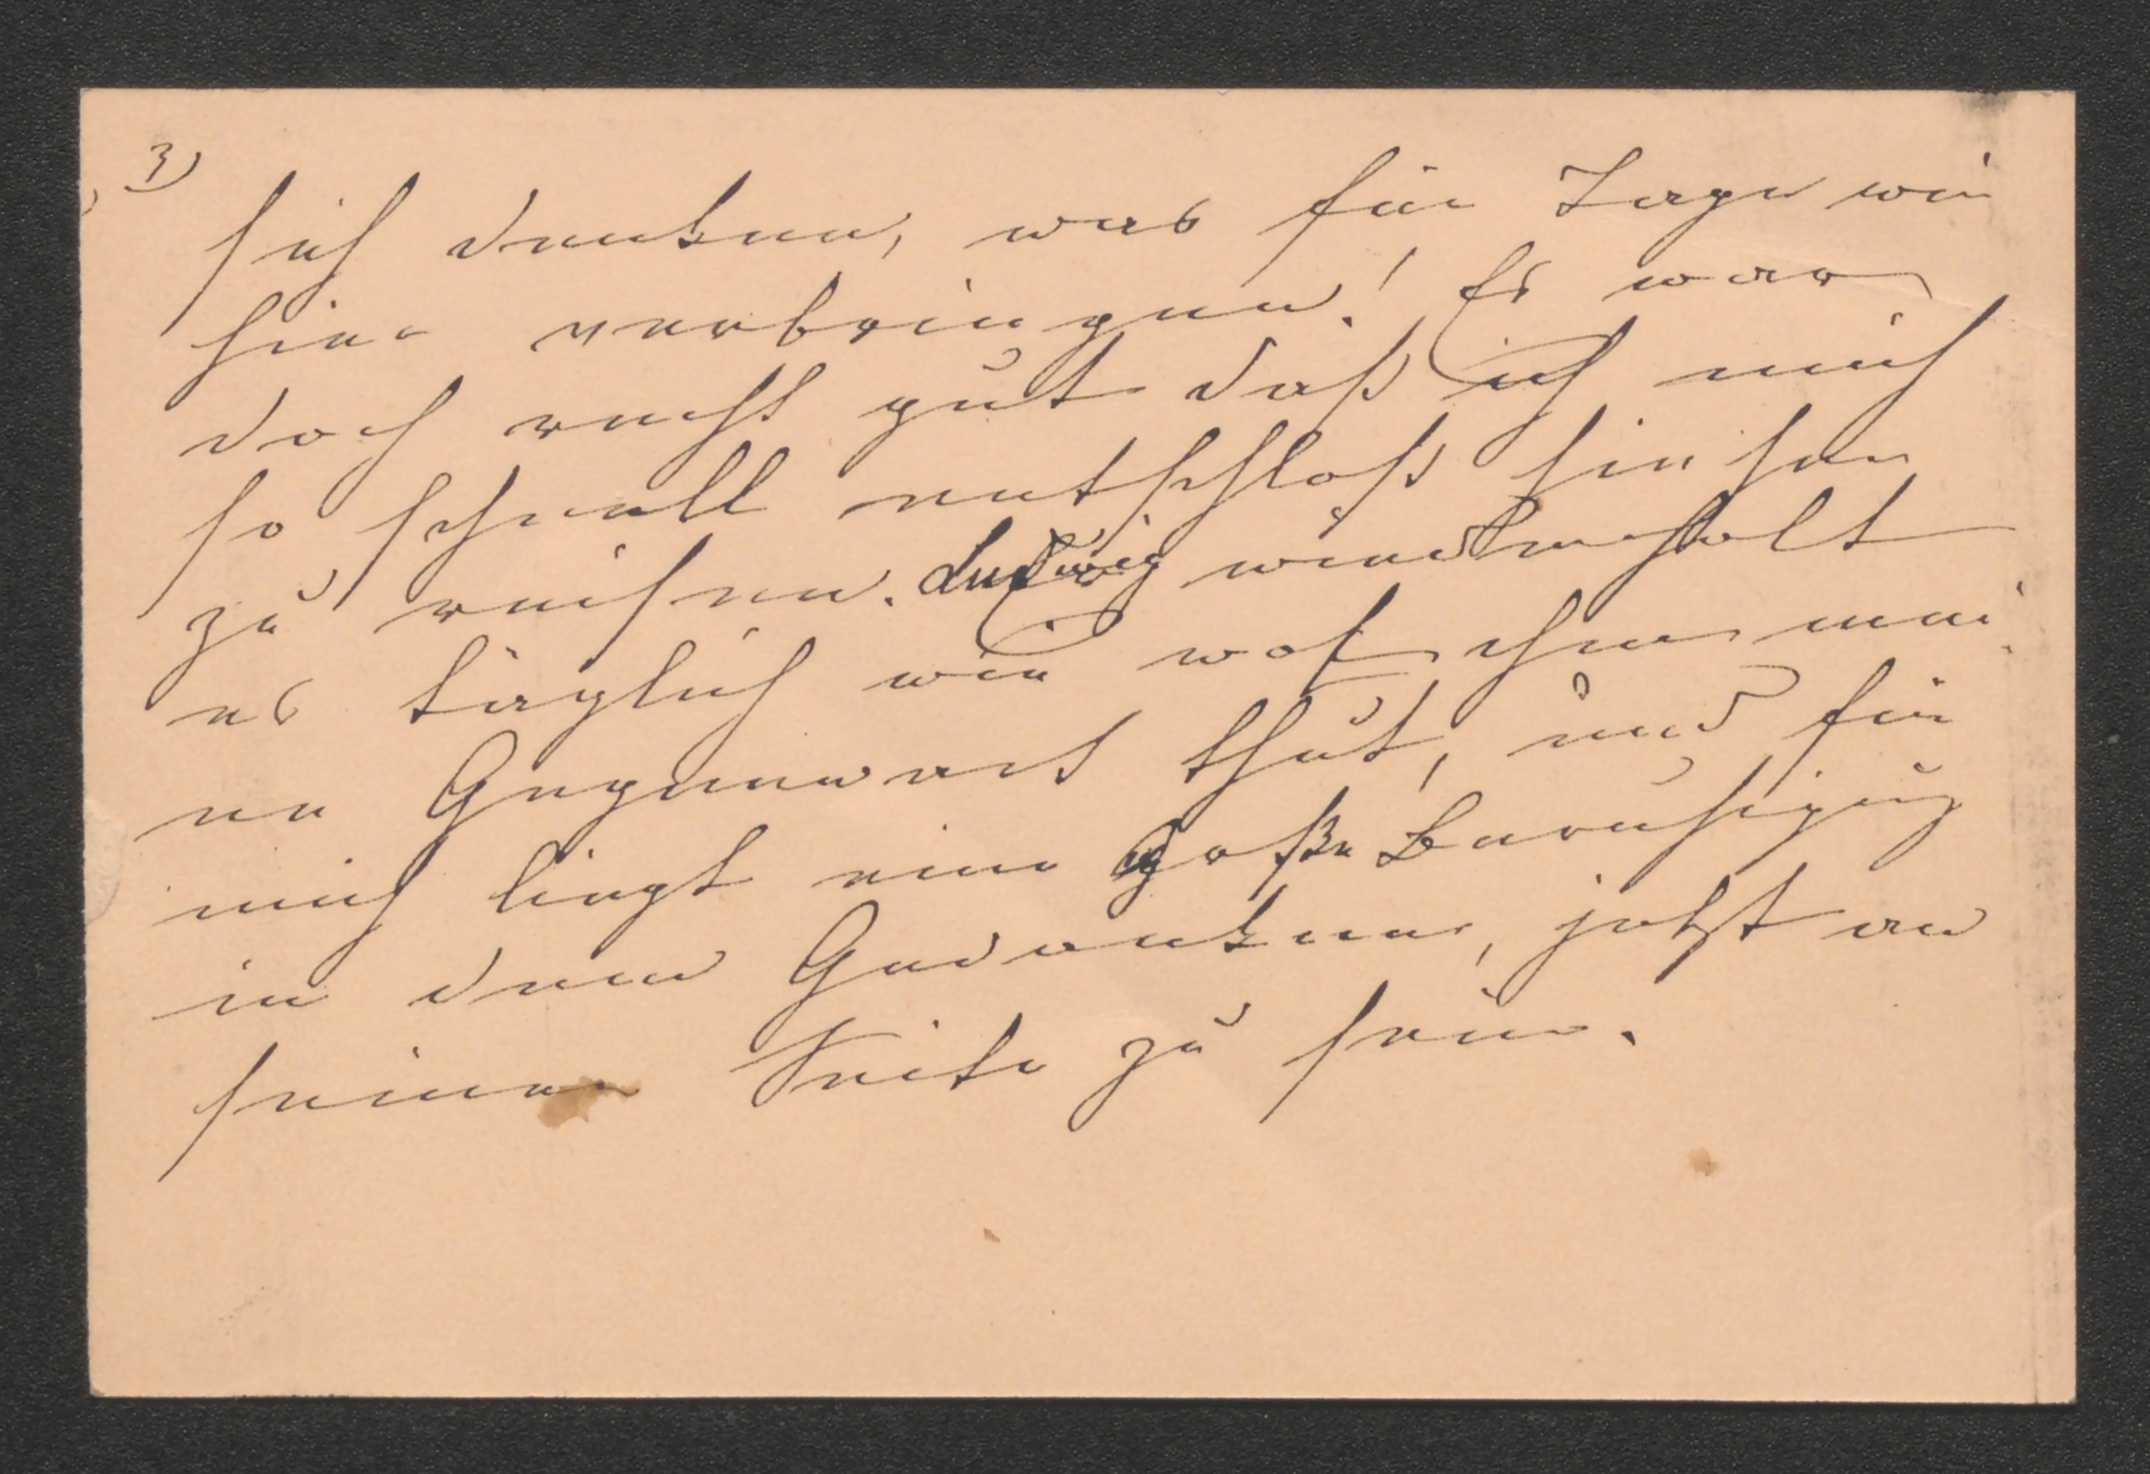 3)
sich denken, was für Tage wir
hier verbringen! Es war
doch recht gut daß ich mich
so schnell entschloß hierher
zu reisen. Ludwig wiederholt
es täglich wie wol ihm mei-
ne Gegenwart thut, und für
mich liegt eine große Beruhigug
in dem Gedanken, jetzt an
seiner Seite zu sein.